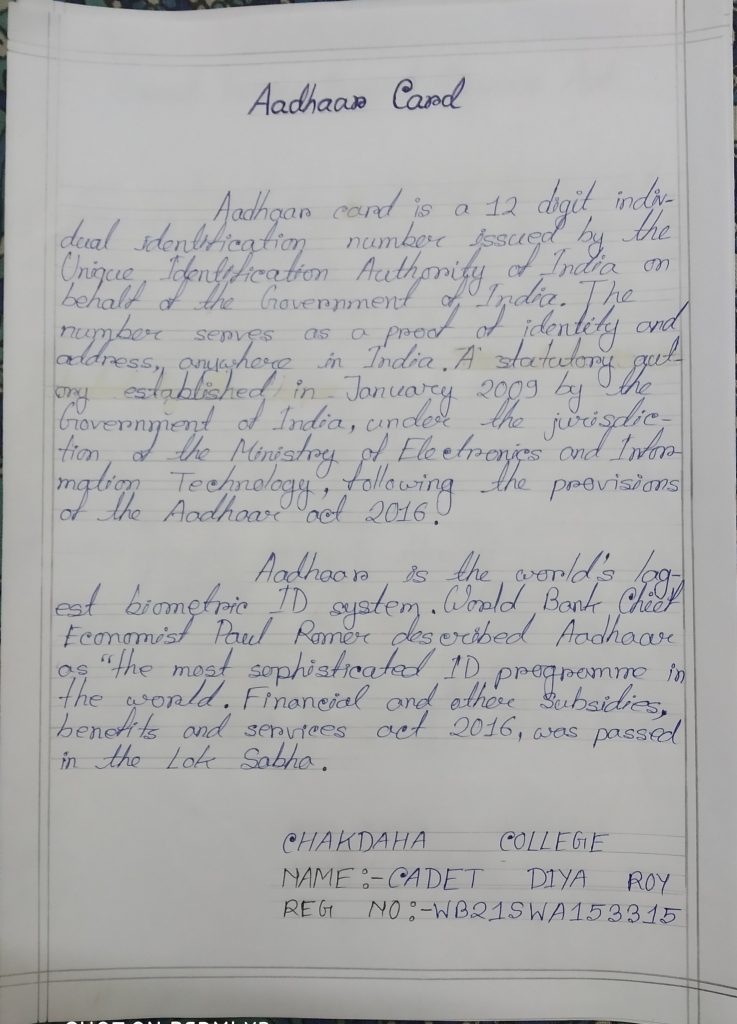 Aadhaar Card
Aadhaar card is a 12 digit indiv-
dual identification number issued by the
Unique Identification Authority of India on
behalf of the Government of India. The
number serves as a proof of identity and
address, anywhere in India. A statutory aut-
ory established in January 2009 by the
Government of India, under the jurisdic-
tion of the Ministry of Electronics and Infor-
mation Technology, following the provisions
of the Aadhaar act 2016.
Aadhaar is the world's lag-
est biometric ID system. World Bank Chief
Economist Paul Romer described Aadhaar
as "the most sophisticated ID programme in
the world. Financial and other Subsidies,
benefits and services act 2016, was passed
in the Lok Sabha.
CHAKDAHA COLLEGE
NAME:-CADET DIYA ROY
REG NO:-WB21SWA153315